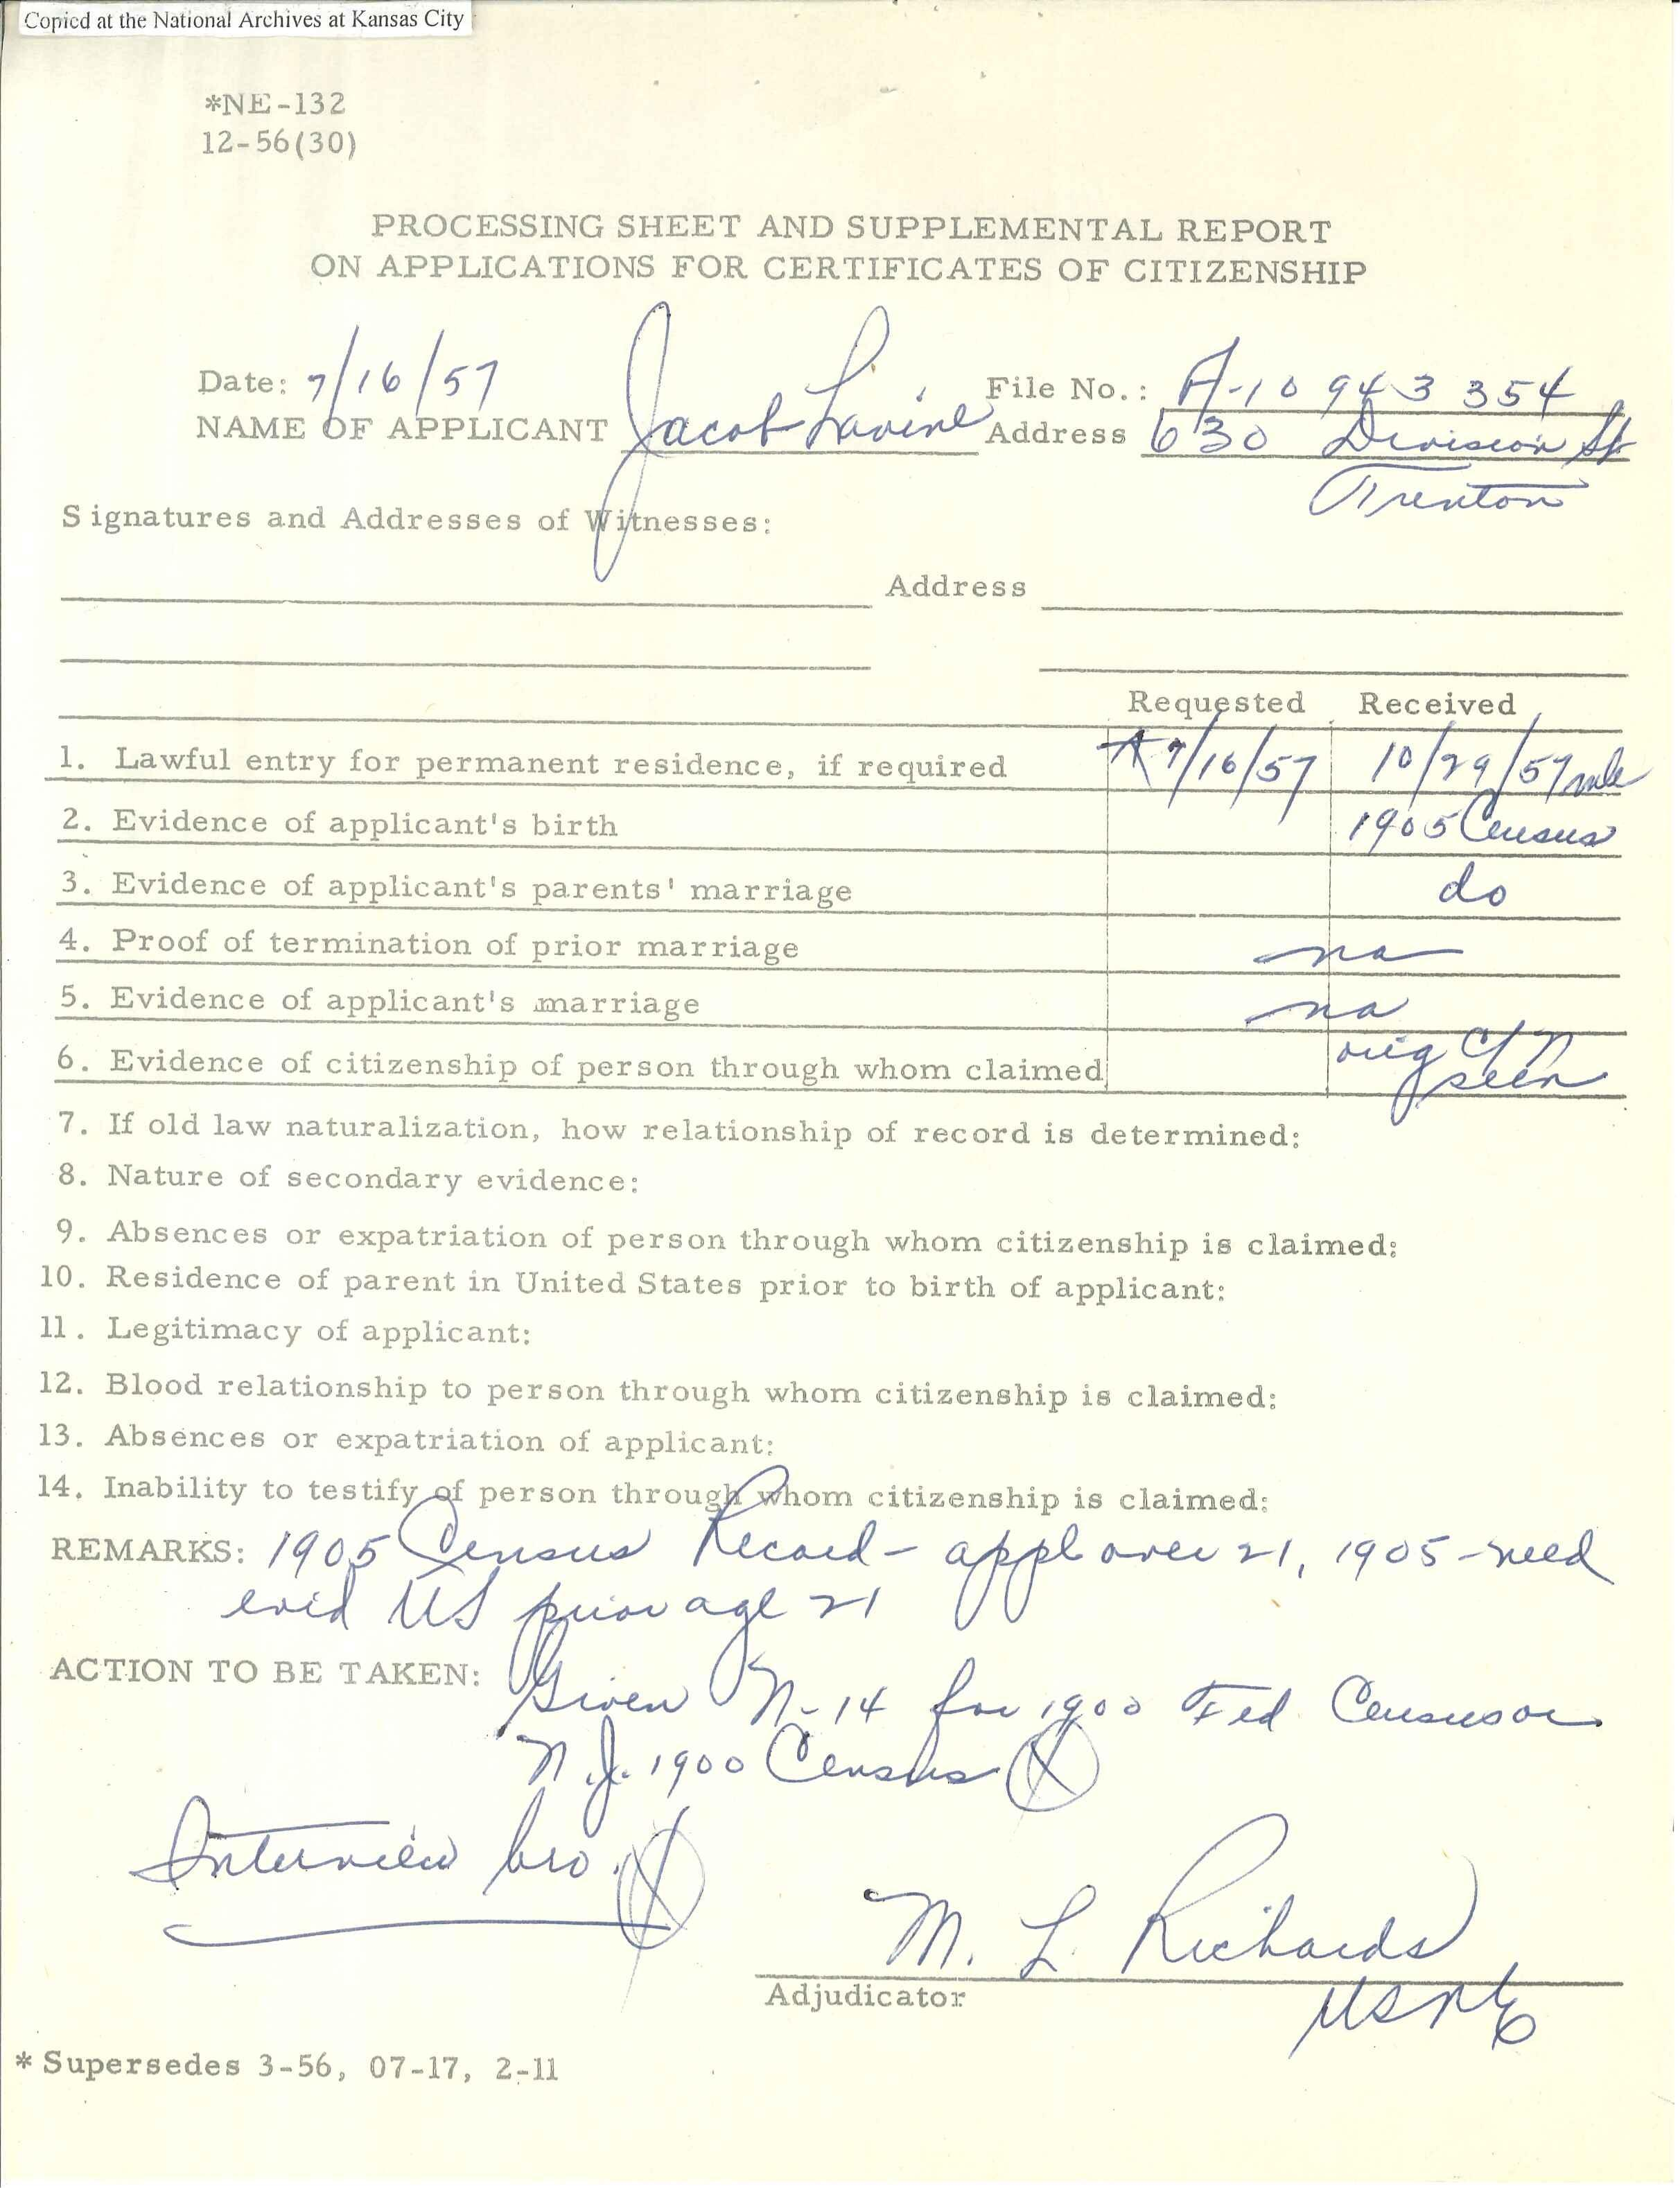 Copied at the National Archives at Kansas City
*NE-132
12-56(30)
PROCESSING SHEET AND SUPPLEMENTAL REPORT
ON APPLICATIONS FOR CERTIFICATES OF CITIZENSHIP
Date: 7/16/57 File No.: A-10 943 354
NAME OF APPLICANT Jacob Lavine Address 630 Division St
Trenton
Signatures and Addresses of Witnesses:
Address
Requested Received
1. Lawful entry for permanent residence, if required 7/16/57 10/29/57 mle
2. Evidence of applicant's birth 1905 Census
3. Evidence of applicant's parents' marriage do
4. Proof of termination of prior marriage na
5. Evidence of applicant's marriage na
6. Evidence of citizenship of person through whom claimed orig C/N
seen
7. If old law naturalization, how relationship of record is determined:
8. Nature of secondary evidence:
9. Absences or expatriation of person through whom citizenship is claimed:
10. Residence of parent in United States prior to birth of applicant:
11. Legitimacy of applicant:
12. Blood relationship to person through whom citizenship is claimed:
13. Absences or expatriation of applicant:
14. Inability to testify of person through whom citizenship is claimed:
REMARKS: 1905 Census Record - appl over 21, 1905 - need
evid US prior age 21
ACTION TO BE TAKEN: Given N-14 for 1900 Fed Census or
N.J. 1900 Census X
Interview bro. X
M. L. Richards
Adjudicator
* Supersedes 3-56, 07-17, 2-11